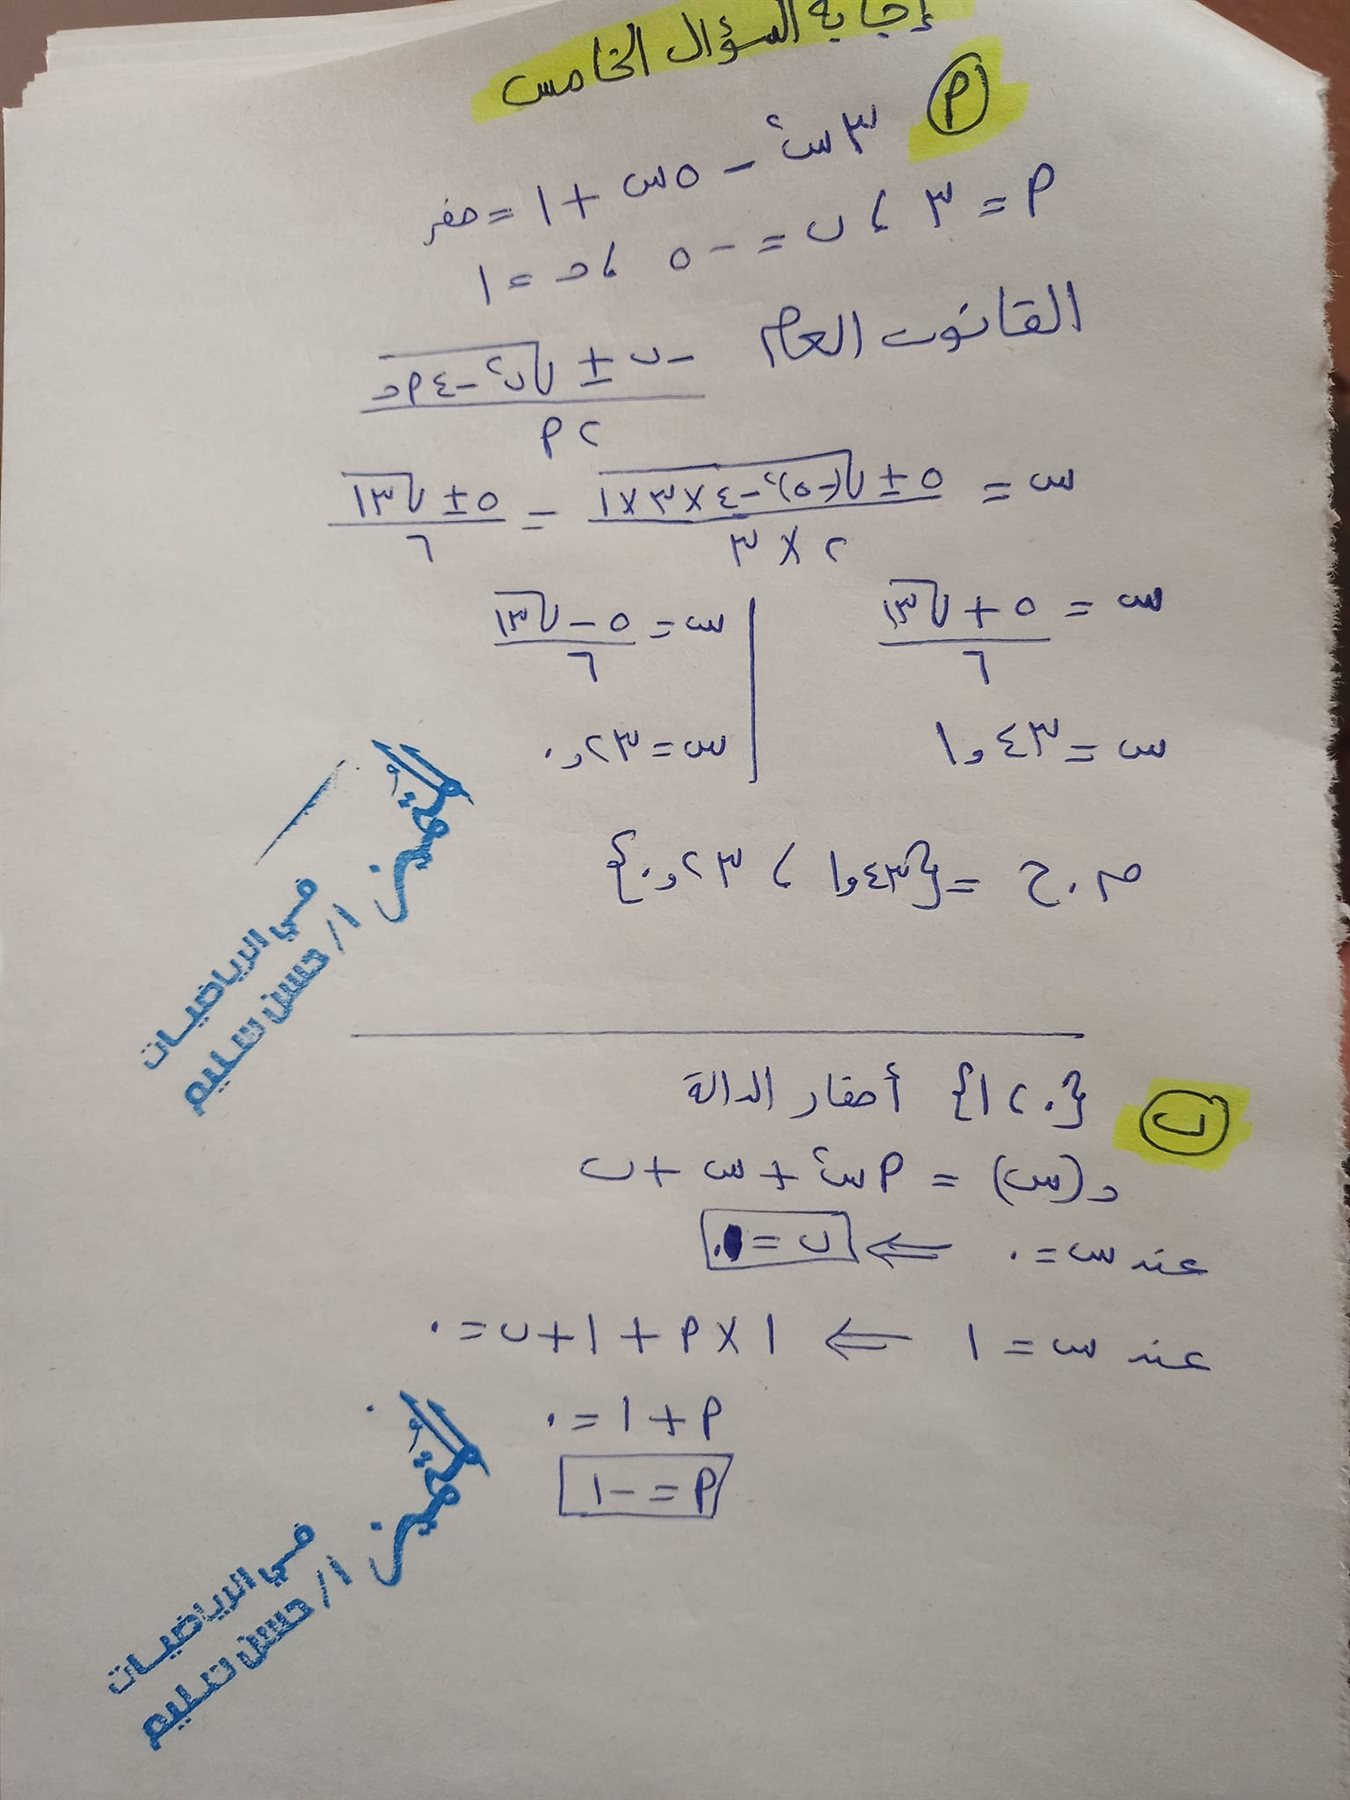 إجابة السؤال الخامس
أ
٣س٢ - ٥س + ١ = صفر
أ = ٣ ، ب = -٥ ، حـ = ١
القانون العام (-ب ± √(ب٢ - ٤أحـ)) / ٢أ
س = (٥ ± √((-٥)٢ - ٤×٣×١)) / (٢×٣) = (٥ ± √١٣) / ٦
س = (٥ + √١٣) / ٦
س = ١٫٤٣
س = (٥ - √١٣) / ٦
س = ٠٫٢٣
م.ح = {١٫٤٣ ، ٠٫٢٣}
المتميز
في الرياضيات
أ/ حسن سليم
ب
{٠ ، ١} أصفار الدالة
د(س) = أس٢ + س + ب
عند س = ٠ ⇐ ب = ٠
عند س = ١ ⇐ ١ × أ + ١ + ب = ٠
أ + ١ = ٠
أ = -١
المتميز
في الرياضيات
أ/ حسن سليم